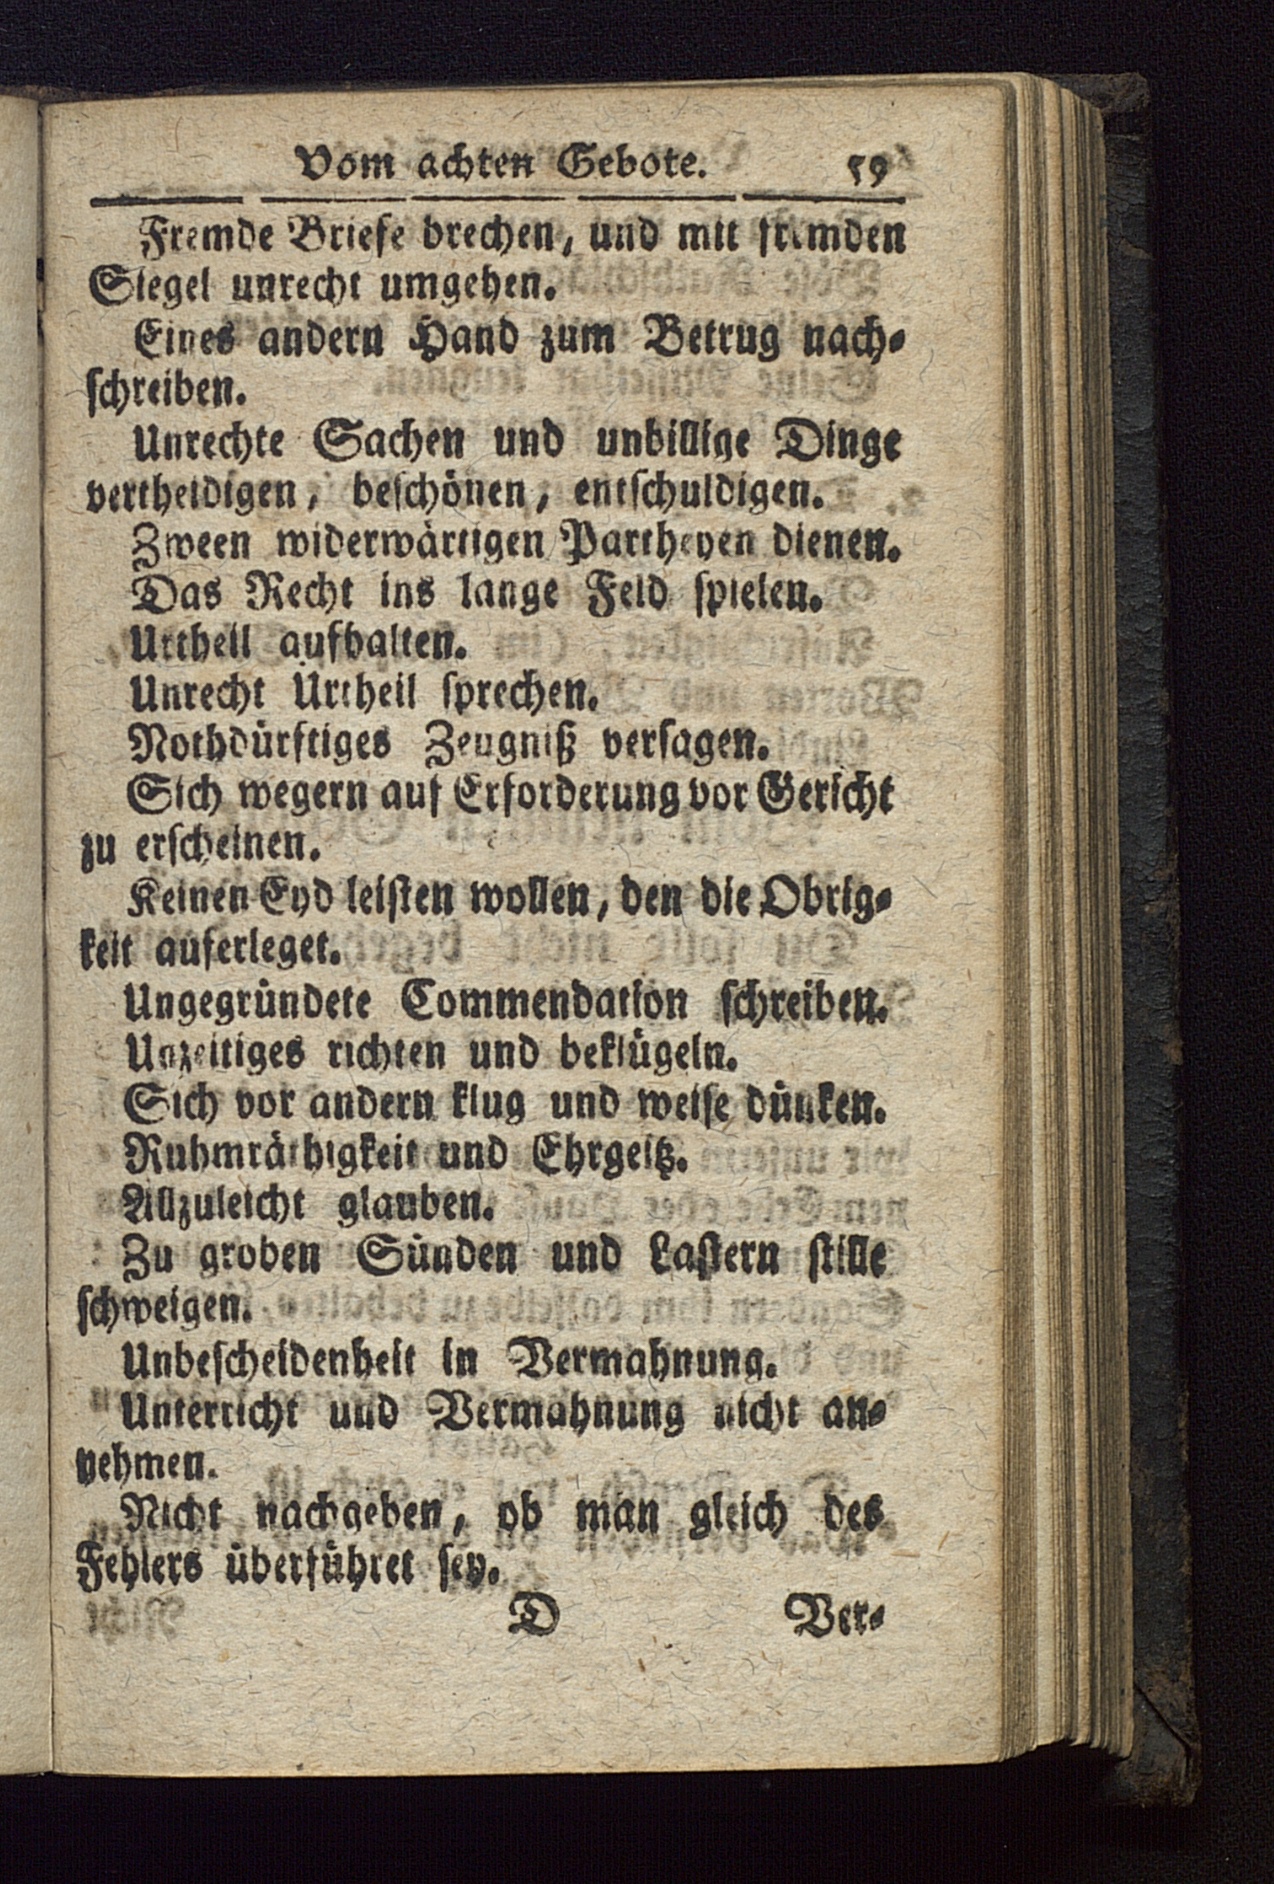 Vom achten Gebote. 59
Fremde Briefe brechen, und mit fremden
Siegel unrecht umgehen.
Eines andern Hand zum Betrug nach-
schreiben.
Unrechte Sachen und unbillige Dinge
vertheidigen, beschönen, entschuldigen.
Zween widerwärtigen Partheyen dienen.
Das Recht ins lange Feld spielen.
Urtheil aufhalten.
Unrecht Urtheil sprechen.
Nothdürftiges Zeugniß versagen.
Sich wegern auf Erforderung vor Gericht
zu erscheinen.
Keinen Eyd leisten wollen, den die Obrig-
keit auferleget.
Ungegründete Commendation schreiben.
Unzeitiges richten und beklügeln.
Sich vor andern klug und weise dünken.
Ruhmräthigkeit und Ehrgeitz.
Allzuleicht glauben.
Zu groben Sünden und Lastern stille
schweigen.
Unbescheidenheit in Vermahnung.
Unterricht und Vermahnung nicht an-
nehmen.
Nicht nachgeben, ob man gleich des
Fehlers überführet sey.
D Ver-